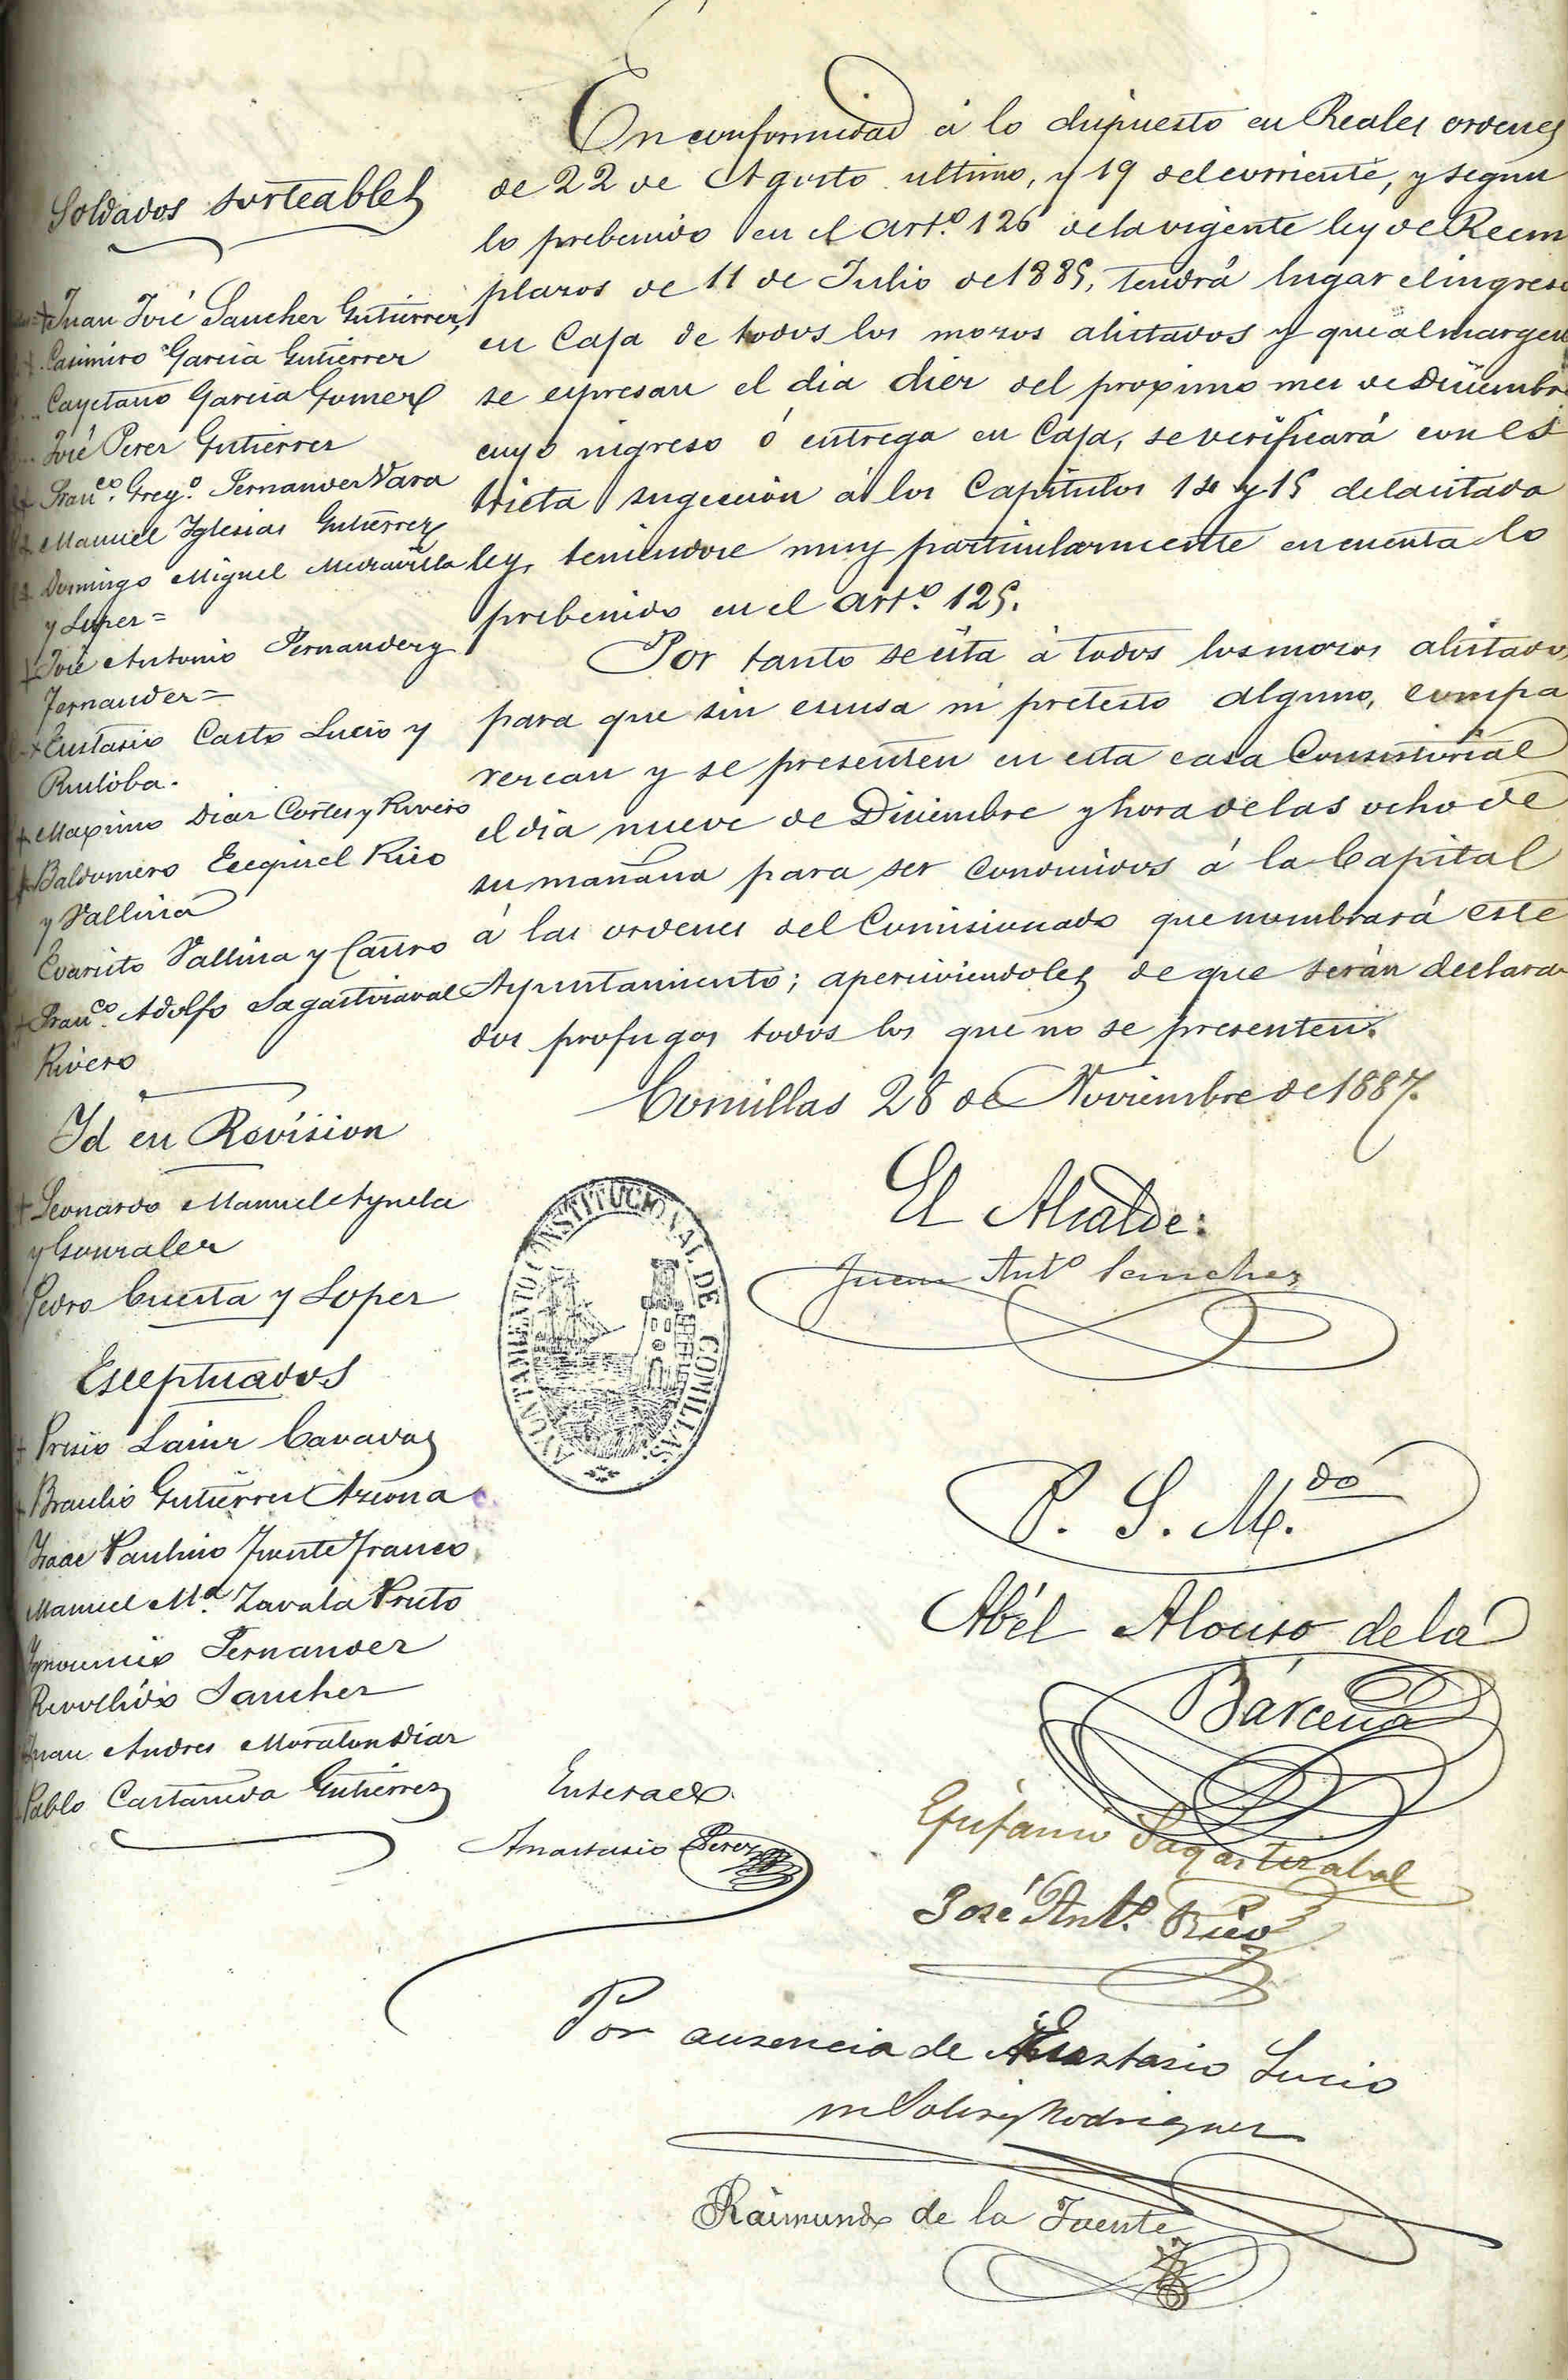 Soldados sorteables
Juan José Sanchez Gutierrez,
Casimiro Garcia Gutierrez
Cayetano Garcia Gomez
José Perez Gutierrez
Franco. Grego. Fernandez Vara
Manuel Yglesias Gutierrez
Domingo Miguel
y Lopez =
José Antonio Fernandez y
Fernandez =
Eustasio Casto Lucio y
Ruiloba.
Maximo Diaz Cortes y Rivero
Baldomero Ecequiel Rico
y Vallina
Evaristo Vallina y Castro
Franco. Adolfo Sagastizabal
Rivero
Id en Revision
Leonardo Manuel
y Gonzalez
Pedro Cuesta y Lopez
Esceptuados
Lainz Canavas
Braulio Gutierrez Azcona
Ysaac Paulino Fuente Franco
Manuel Ma. Zavala Prieto
Fernandez
Sanchez
Juan Andres Moraton Diaz
Pablo Castañeda Gutierrez
En conformidad á lo dispuesto en Reales ordenes
de 22 de Agosto ultimo, y 19 del corriente, y segun
lo prebenido en el arto. 126 de la vigente ley de Reem
plazos de 11 de Julio de 1885, tendrá lugar el ingreso
en Caja de todos los mozos alistados y que al margen
se espresan el dia diez del proximo mes de Diciembre
cuyo ingreso ó entrega en Caja, se verificará con es
tricta sugeccion á los Capitulos 14 y 15 de la citada
ley, teniendose muy particularmente en cuenta lo
prebenido en el arto. 125.
Por tanto se cita á todos los mozos alistados
para que sin escusa ni pretesto alguno, compa
rezcan y se presenten en esta casa Consistorial
el dia nueve de Diciembre y hora de las ocho de
su mañana para ser conducidos á la Capital
á las ordenes del Comisionado que nombrará este
Ayuntamiento; aperciviendoles de que serán declara
dos profugos todos los que no se presenten.
Comillas 28 de Noviembre de 1887.
El Alcalde:
Juan Anto Sanchez
AYUNTAMIENTO CONSTITUCIONAL DE COMILLAS
P. S. M.do
Abél Alonso de la
Bárcena
Enterado.
Anastasio Perez
Epifanio Sagastizabal
José Anto. Rico
Por ausencia de Eustasio Lucio
Rodriguez
Raimundo de la Fuente